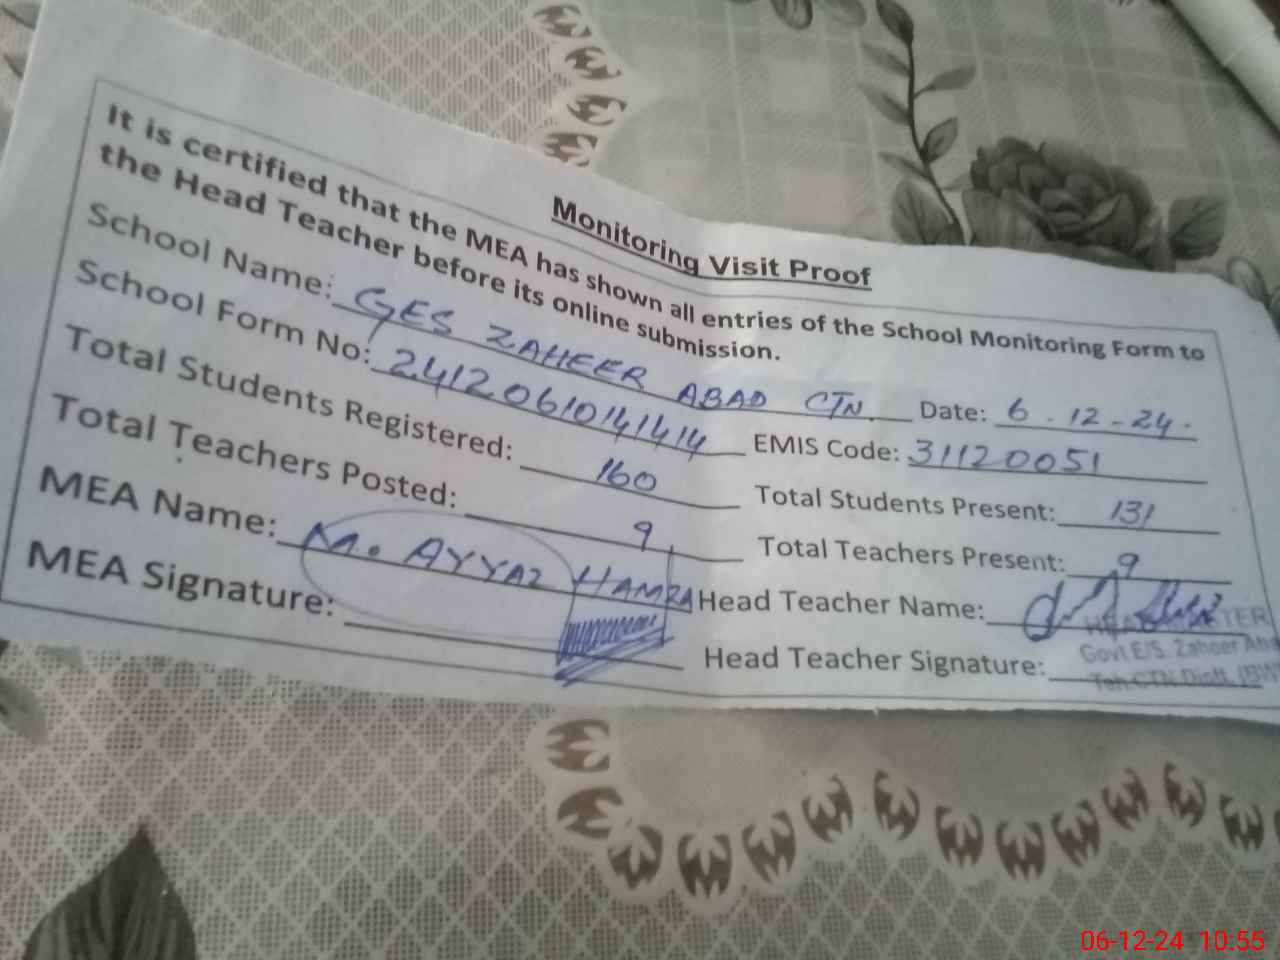 Monitoring Visit Proof
It is certified that the MEA has shown all entries of the School Monitoring Form to
the Head Teacher before its online submission.
School Name: GES ZAHEER ABAD CTN Date: 6-12-24.
School Form No: 24120610141414 EMIS Code: 31120051
Total Students Registered: 160 Total Students Present: 131
Total Teachers Posted: 9 Total Teachers Present: 9
MEA Name: M. AYYAZ HAMZA Head Teacher Name:
MEA Signature: Head Teacher Signature:
Govt E/S. Zaheer
Teh CTN Distt. (BW
06-12-24 10:55